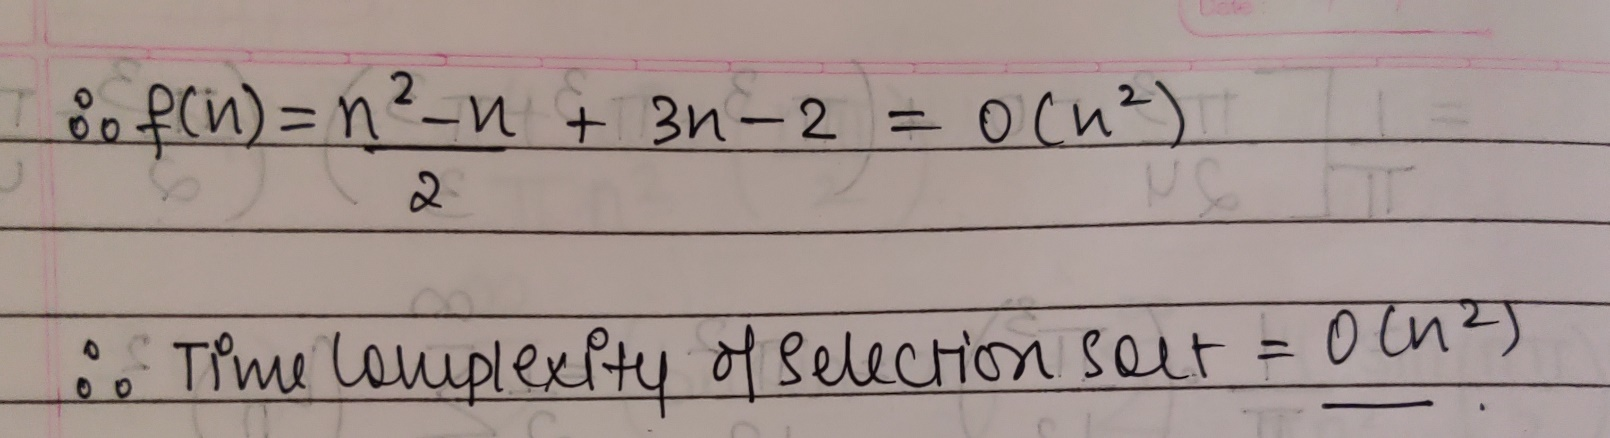 ∴ f(n) = n² - n / 2 + 3n - 2 = O(n²)
∴ Time Complexity of Selection Sort = O(n²).